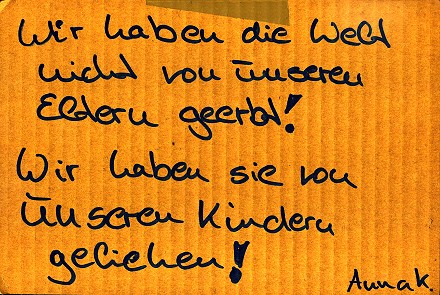 Wir haben die Welt
nicht von unseren
Eltern geerbt!
Wir haben sie von
unseren Kindern
geliehen!
Anna K.